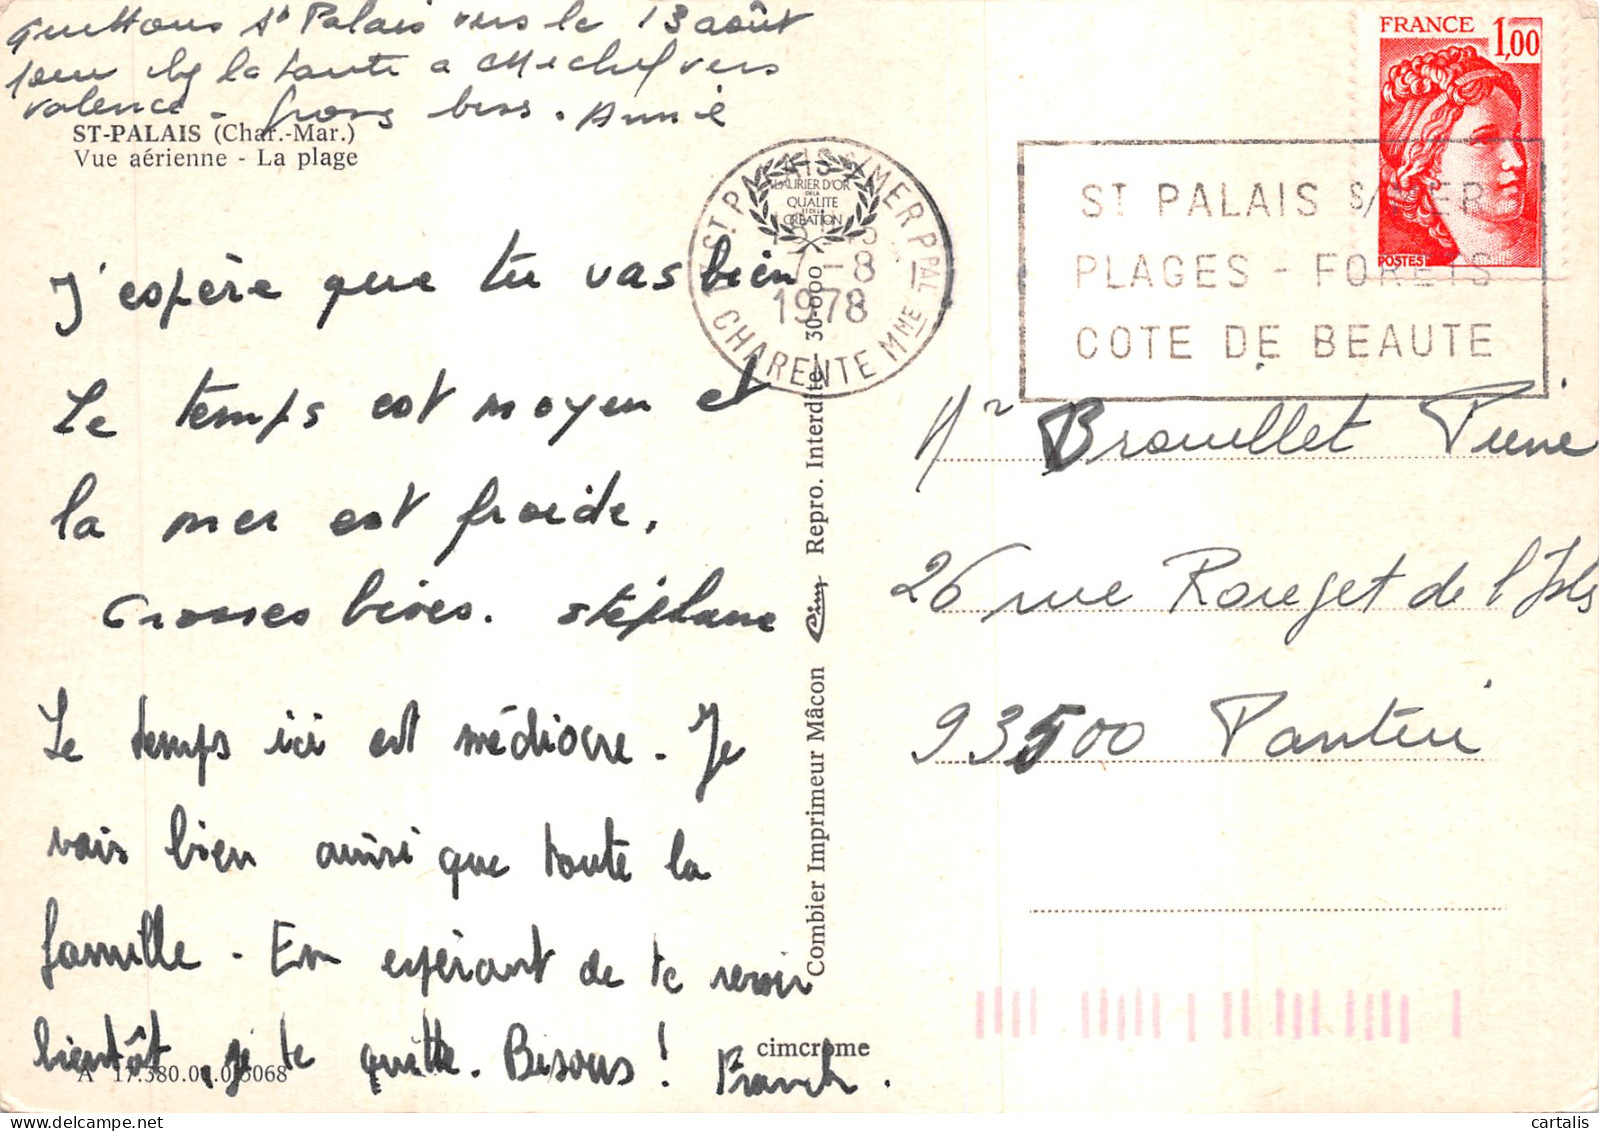 quittons St Palais vers le 13 août
pour la tante a Michel vers
Valence - gros bises. Annie
ST-PALAIS (Char.-Mar.)
Vue aérienne - La plage
J'espère que tu vas bien
Le temps est moyen et
la mer est froide.
Grosses bises. Stéphane
Le temps ici est médiocre - Je
vais bien ainsi que toute la
famille - En espérant de te revoir
bientôt, je te quitte. Bisous ! Franck.
A 17.380.00.0.3068
cimcrome
Combier Imprimeur Mâcon Cim Repro. Interdite 30-000
LAURIER D'OR
DE LA
QUALITE
ET DE LA
CREATION
17 ST PALAIS S/MER PPAL
7-8
1978
CHARENTE MME
ST PALAIS S/MER
PLAGES - FORETS
COTE DE BEAUTE
FRANCE 1,00
POSTES
Mr Brouillet Pierre
26 rue Rouget de l'Isle
93500 Pantin
cartalis.delcampe.net